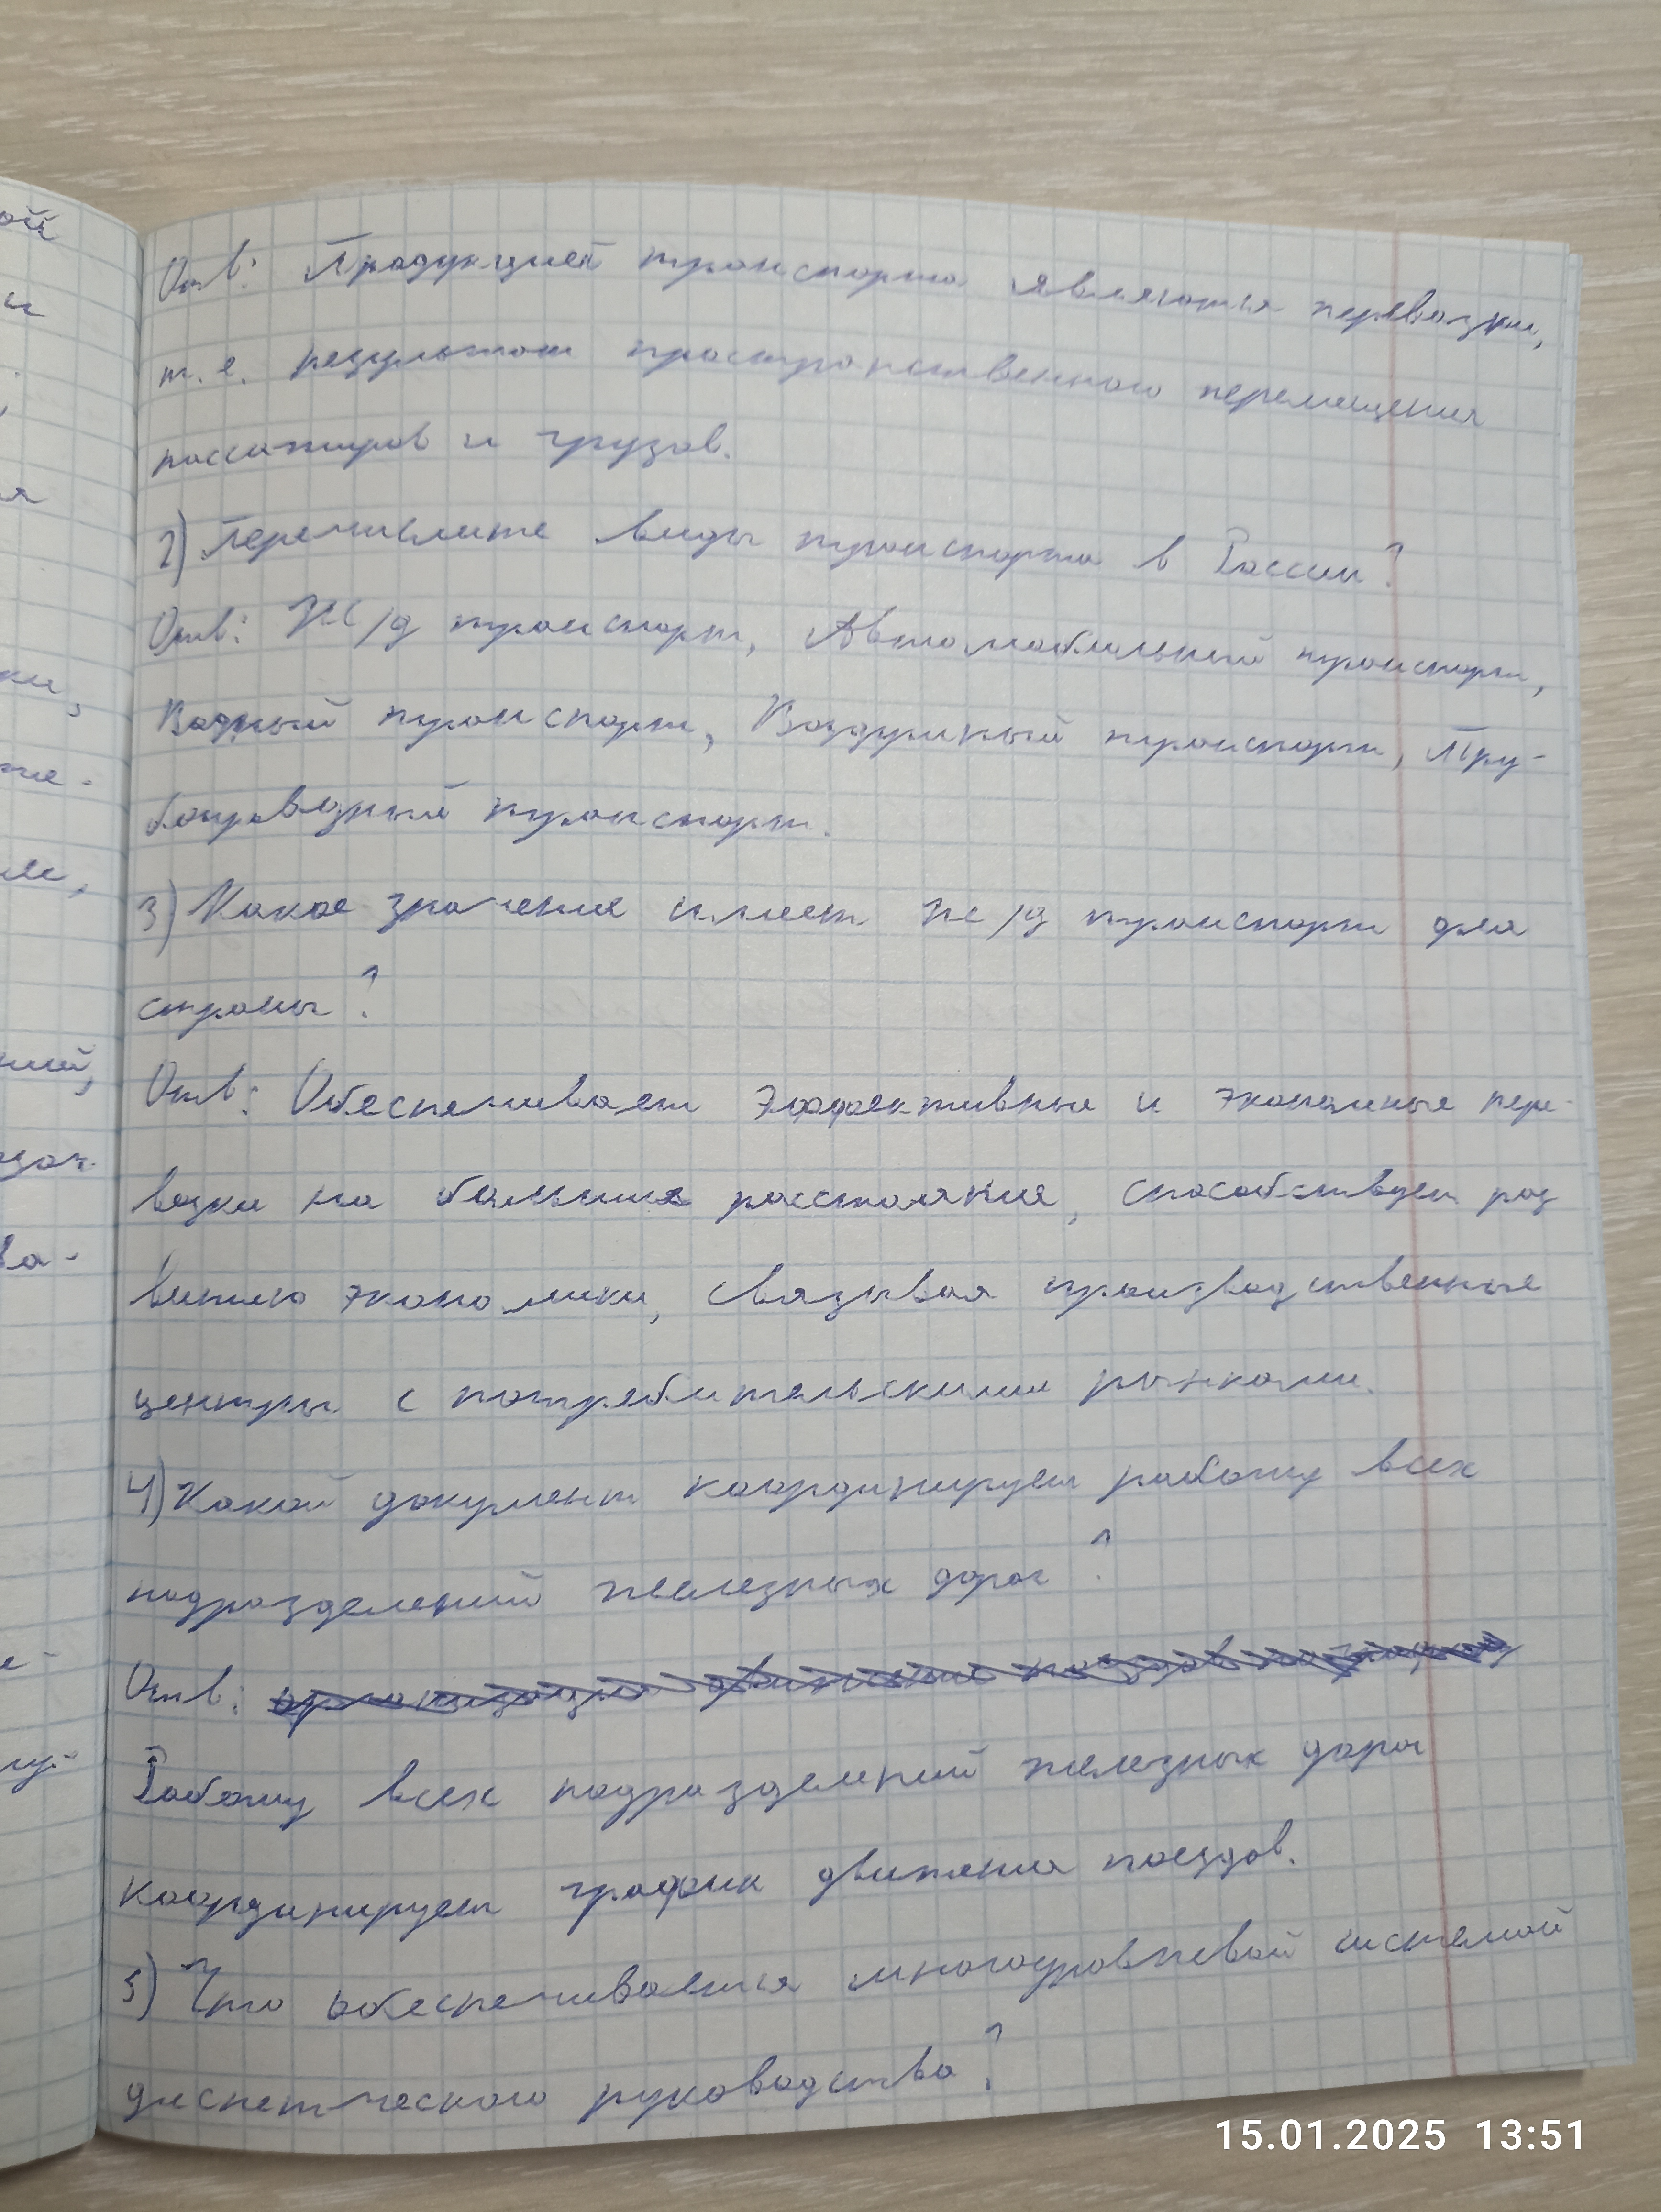 Отв: Продукцией транспорта являются перевозки,
т.е. результат пространственного перемещения
пассажиров и грузов.
2) Перечислите виды транспорта в России?
Отв: Ж/д транспорт, Автомобильный транспорт,
Водный транспорт, Воздушный транспорт, Тру-
бопроводный транспорт.
3) Какое значение имеет ж/д транспорт для
страны?
Отв: Обеспечивает эффективные и экономные пере-
возки на большие расстояния, способствует раз
витию экономики, связывая производственные
центры с потребительскими рынками.
4) Какой документ координирует работу всех
подразделений железных дорог?
Отв:
Работу всех подразделений железных дорог
координирует график движения поездов.
5) Что обеспечивается многоуровневой системой
диспетческого руководства?
15.01.2025 13:51